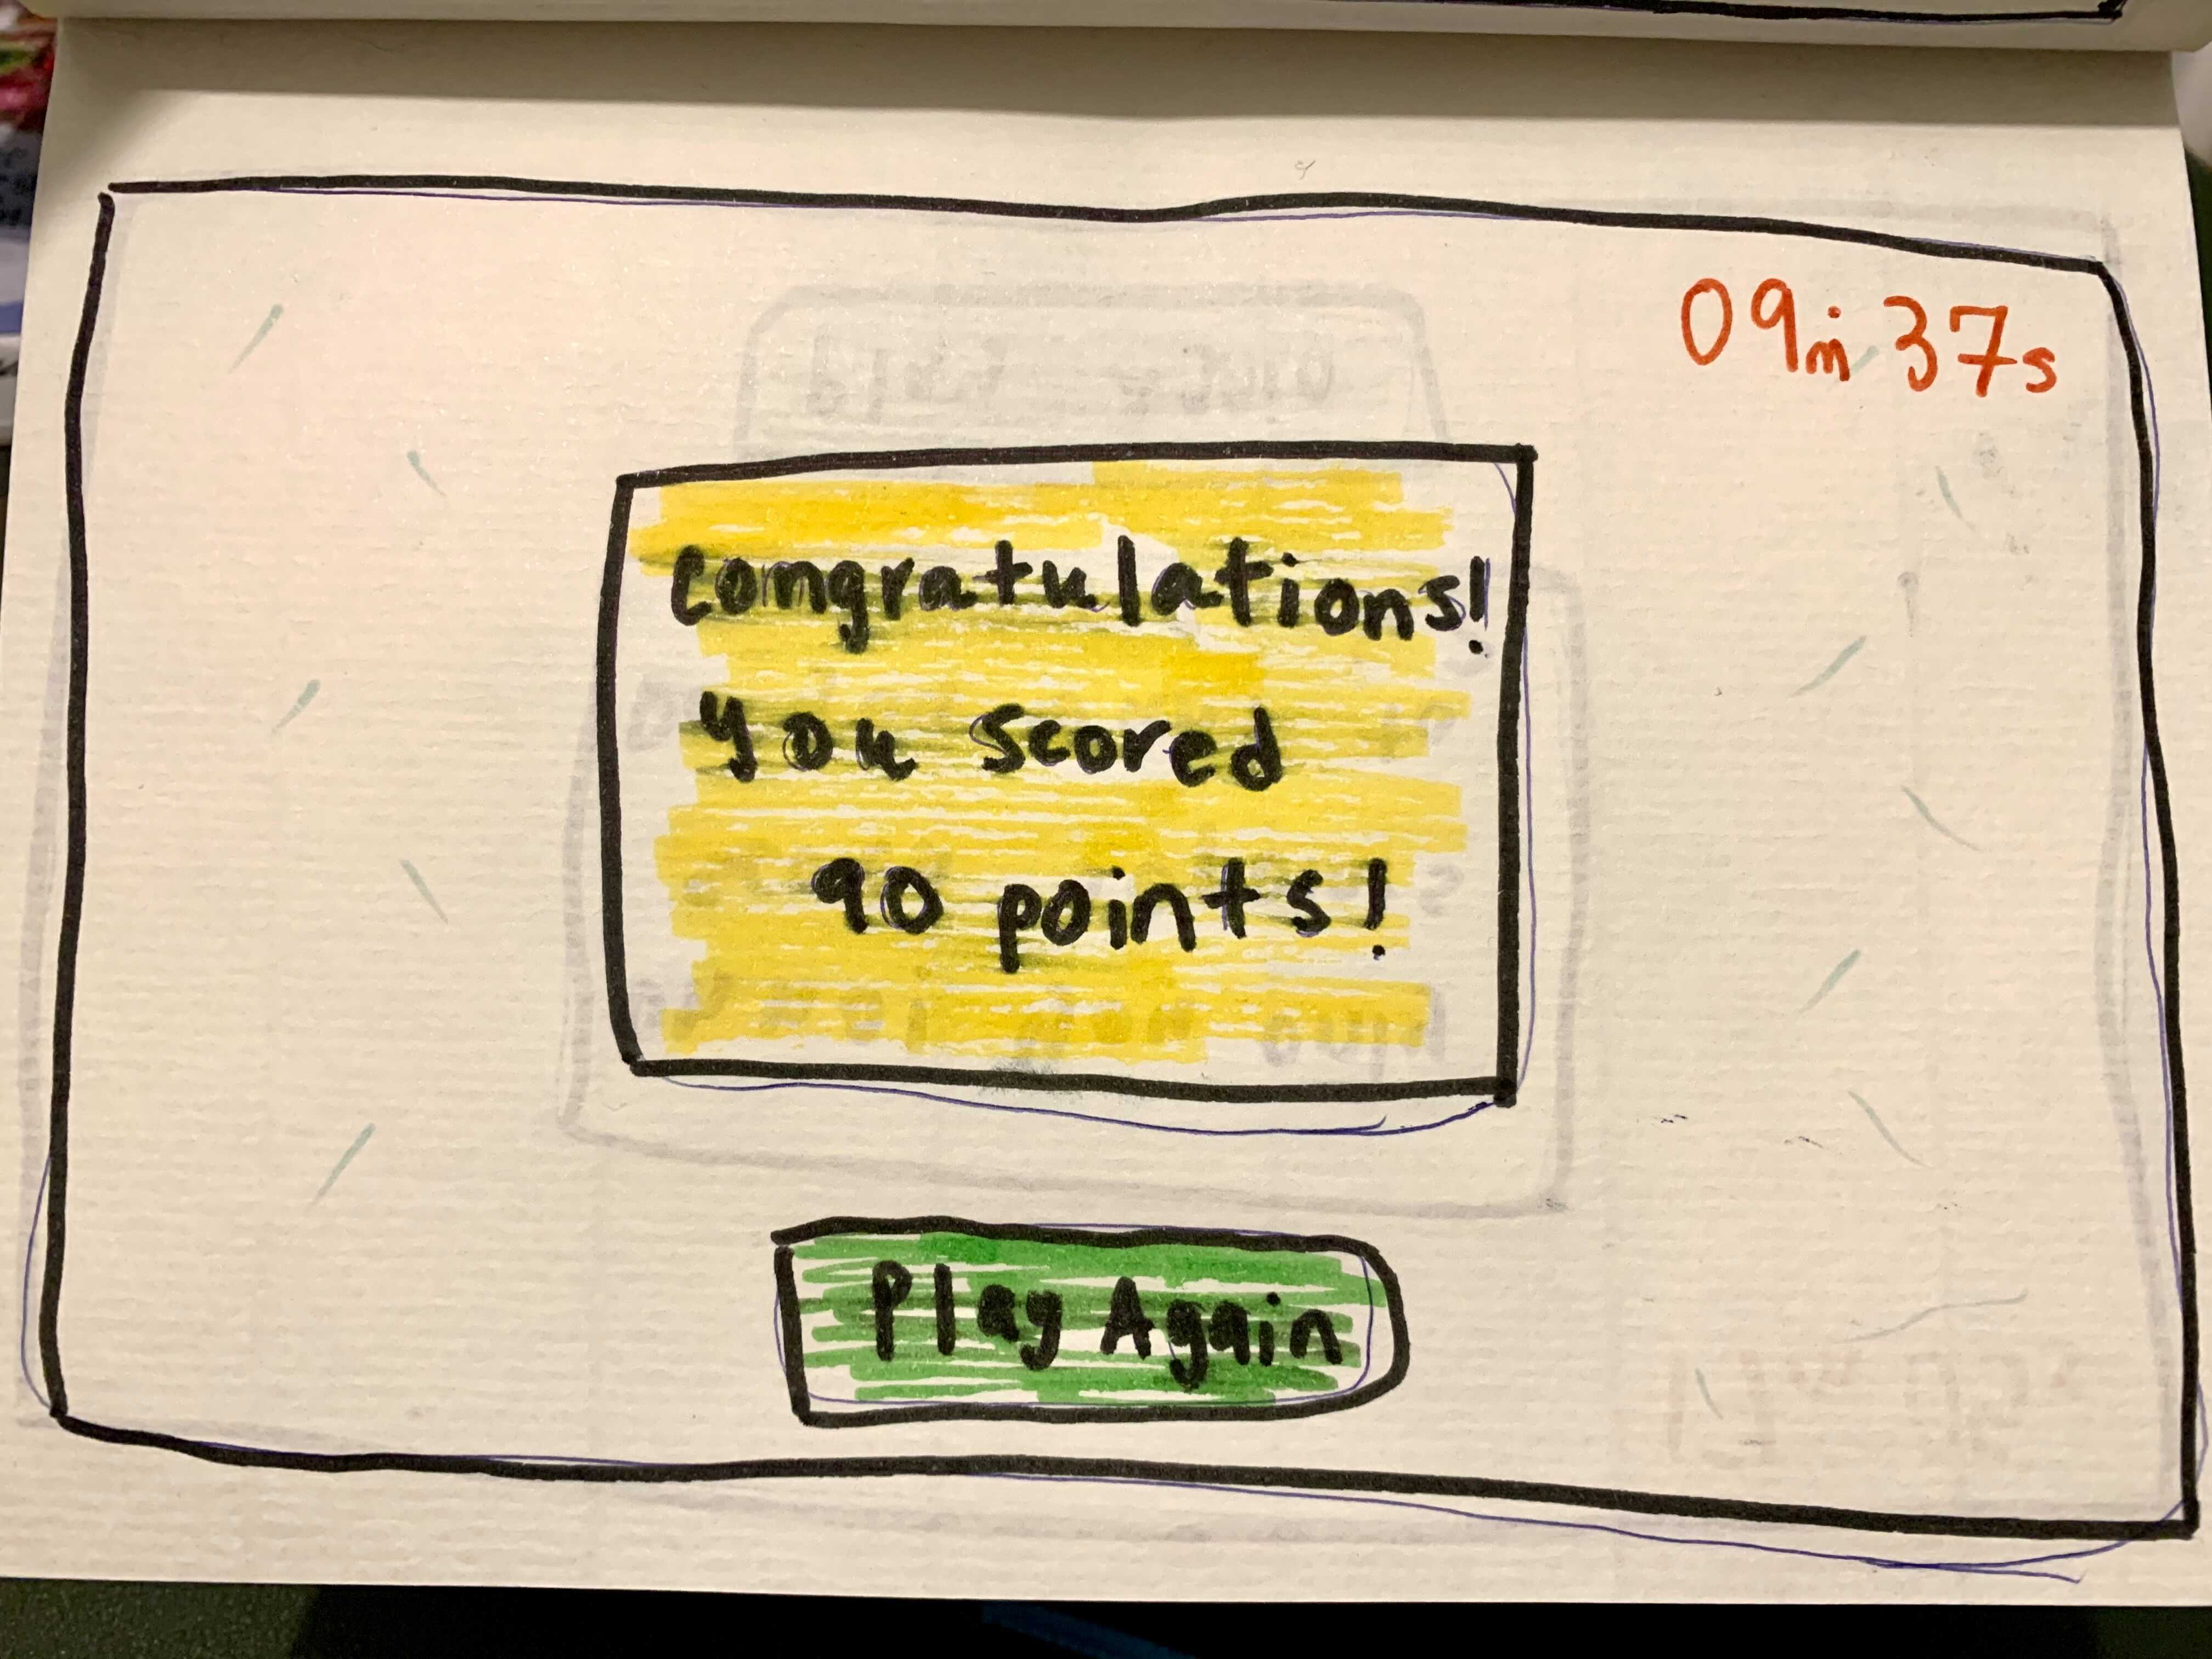 09m 37s
Congratulations!
You scored
90 points!
Play Again